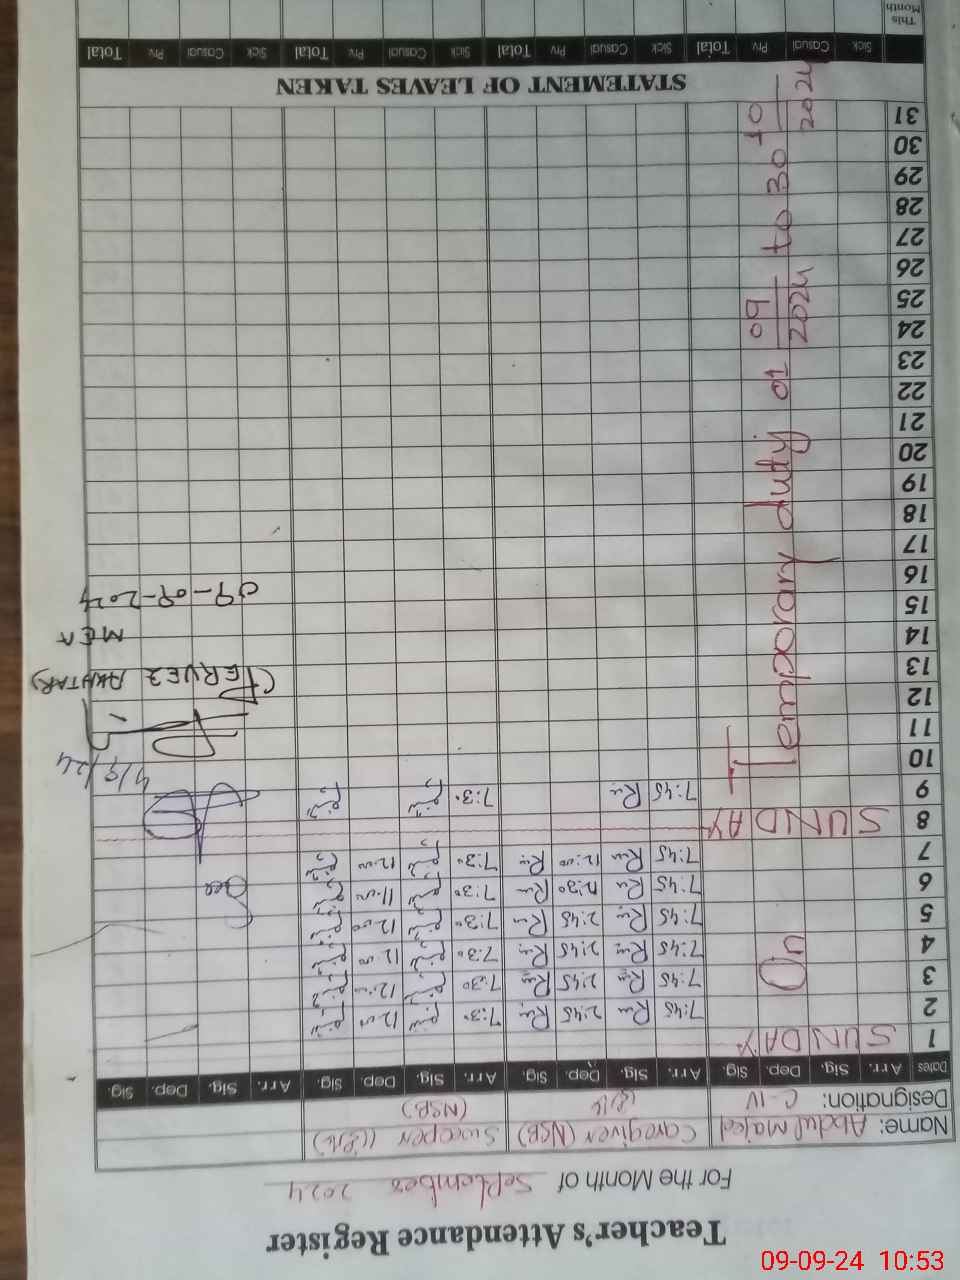 Teacher's Attendance Register
For the Month of September 2024
Name: Abdul Majed Caregiver (NSB) Sweeper
Designation: C-IV (NSB)
Dates Arr. Sig. Dep. Sig Arr. Sig. Dep. Sig Arr. Sig. Dep. Sig Arr. Sig. Dep. Sig
1 SUNDAY
2 7:45 Ru 2:45 Ru 7:30 12:00
3 7:45 Ru 2:45 Ru 7:30 12:00
4 7:45 Ru 2:45 Ru 7:30 12:00
5 7:45 Ru 2:45 Ru 7:30 12:00
6 7:45 Ru 12:30 Ru 7:30 11:00
7 7:45 Ru 12:00 Ru 7:30 12:00
8 SUNDAY
9 7:45 Ru 7:30
10
11
12
13
14
15
16
17
18
19
20
21
22
23
24
25
26
27
28
29
30
31
On Temporary duty 01 09 2024 to 30 10 2024
9/9/24
(PERVEZ AKHTAR)
MEA
09-09-2024
STATEMENT OF LEAVES TAKEN
Sick Casual Prv Total Sick Casual Prv Total Sick Casual Prv Total Sick Casual Prv Total
This Month
09-09-24 10:53